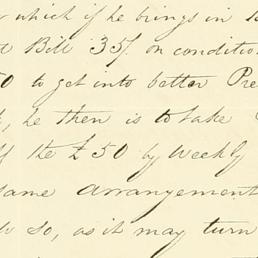 which if he brings in
Bill 35/. on condition
50 to get into better Pre
he then is to take
the £50 by Weekly
same arrangement
so, as it may turn